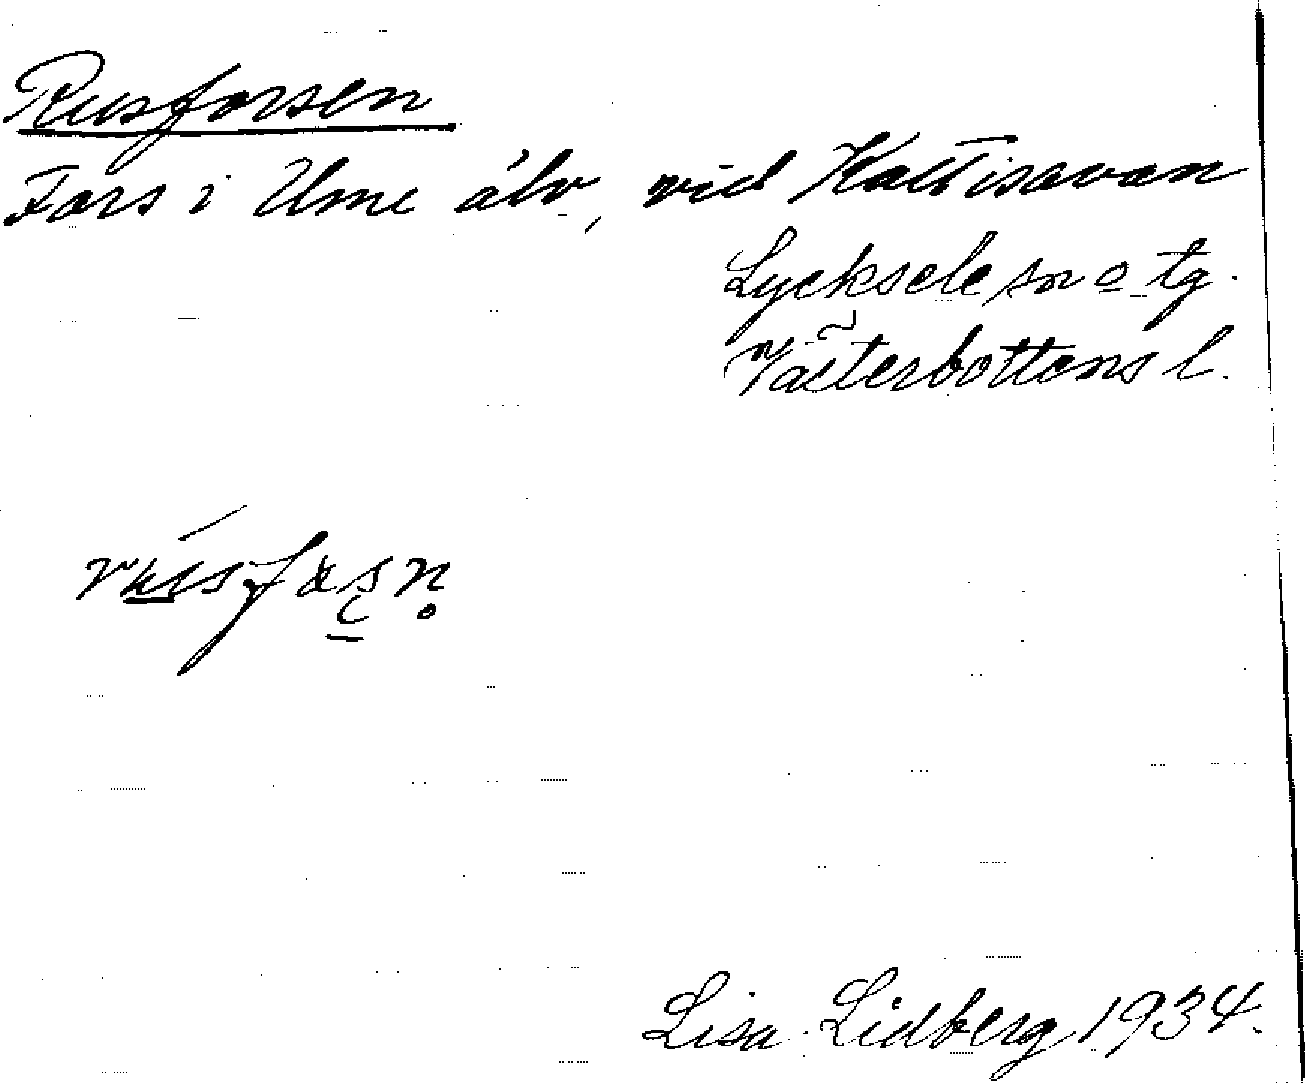 Rusforsen
Fors i Ume älv, vid Kattisavan
Lycksele sn o tg.
Västerbottens l.
Lisa Lidberg 1934.